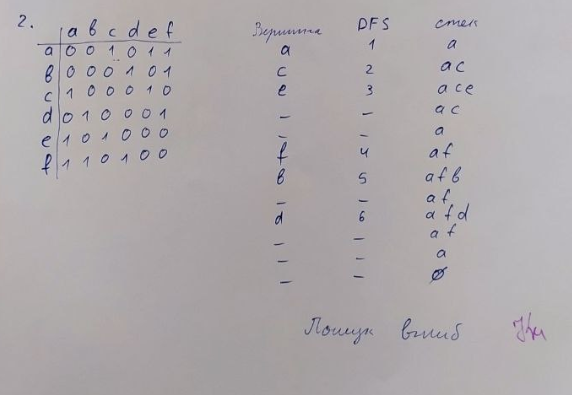 2.
a b c d e f
a 0 0 1 0 1 1
b 0 0 0 1 0 1
c 1 0 0 0 1 0
d 0 1 0 0 0 1
e 1 0 1 0 0 0
f 1 1 0 1 0 0
Вершина DFS стек
a 1 a
c 2 ac
e 3 ace
– – ac
– – a
f 4 af
b 5 afb
– – af
d 6 afd
– – af
– – a
– – ∅
Пошук вглиб